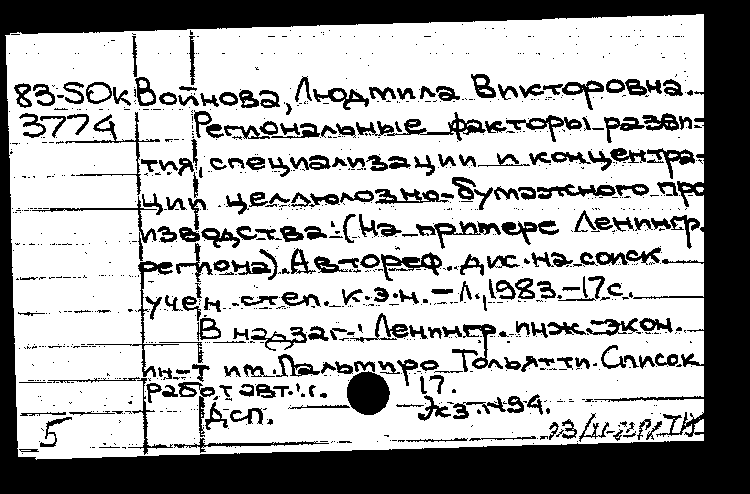 83-5OK Войнова, Людмила Викторовна.
3774 Региональные факторы разви-
тия, специализации и концентра-
ции целлюлозно-бумажного про
изводства: (На примере Ленингр.
региона). Автореф. дис. на соиск.
учен. степ. к.э.н. – Л., 1983. – 17с.
В надзаг.: Ленингр. инж.-экон.
ин-т им. Пальмиро Тольятти. Список
работ авт.: с. 17.
ДСП. Экз. №94.
5